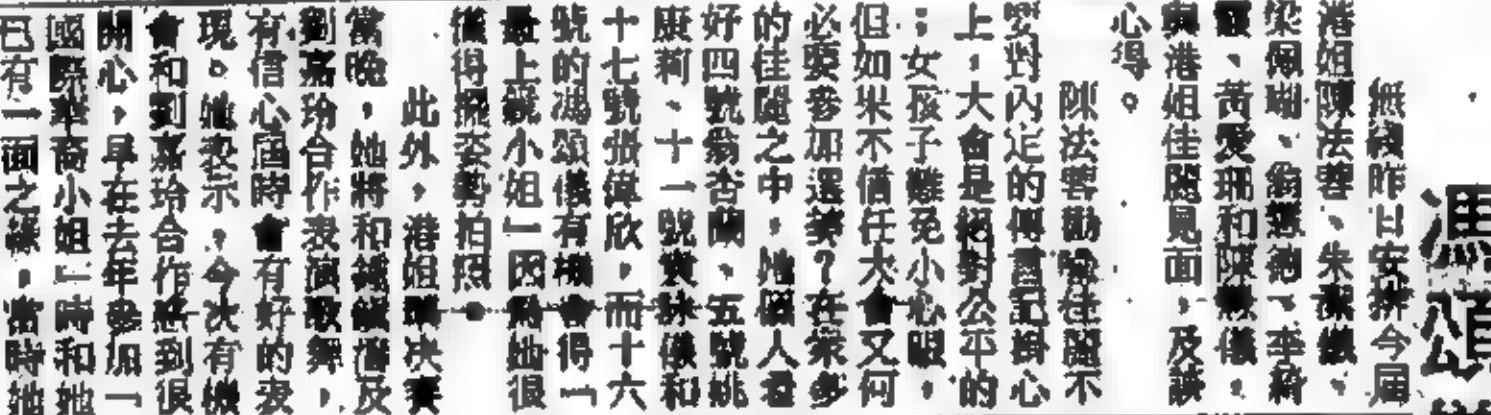 馮頌
無綫昨日安排今屆
港姐陳法蓉、朱潔儀、
梁佩瑚、翁慧德、李綺
、黃愛珊和陳 儀,
與港姐佳麗見面,及談
心得。
陳法蓉勸喻佳麗不
要對內定的傳言記掛心
上,大會是絕對公平的
;女孩子難免小心眼,
但如果不信任大會又何
必要參加選美?在眾多
的佳麗之中,她個人看
好四號翁杏蘭、五號姚
康莉、十一號袁 儀和
十七號張偉欣,而十六
號的馮頌儀有機會得「
最上鏡小姐」因為她很
懂得擺姿勢拍照。
此外,港姐 決賽
當晚,她將和 及
劉嘉玲合作表演歌舞,
有信心屆時會有好的表
現。她表示,今次有機
會和劉嘉玲合作感到很
開心,早在去年參加「
國際華裔小姐」時和她
已有一面之緣,當時她